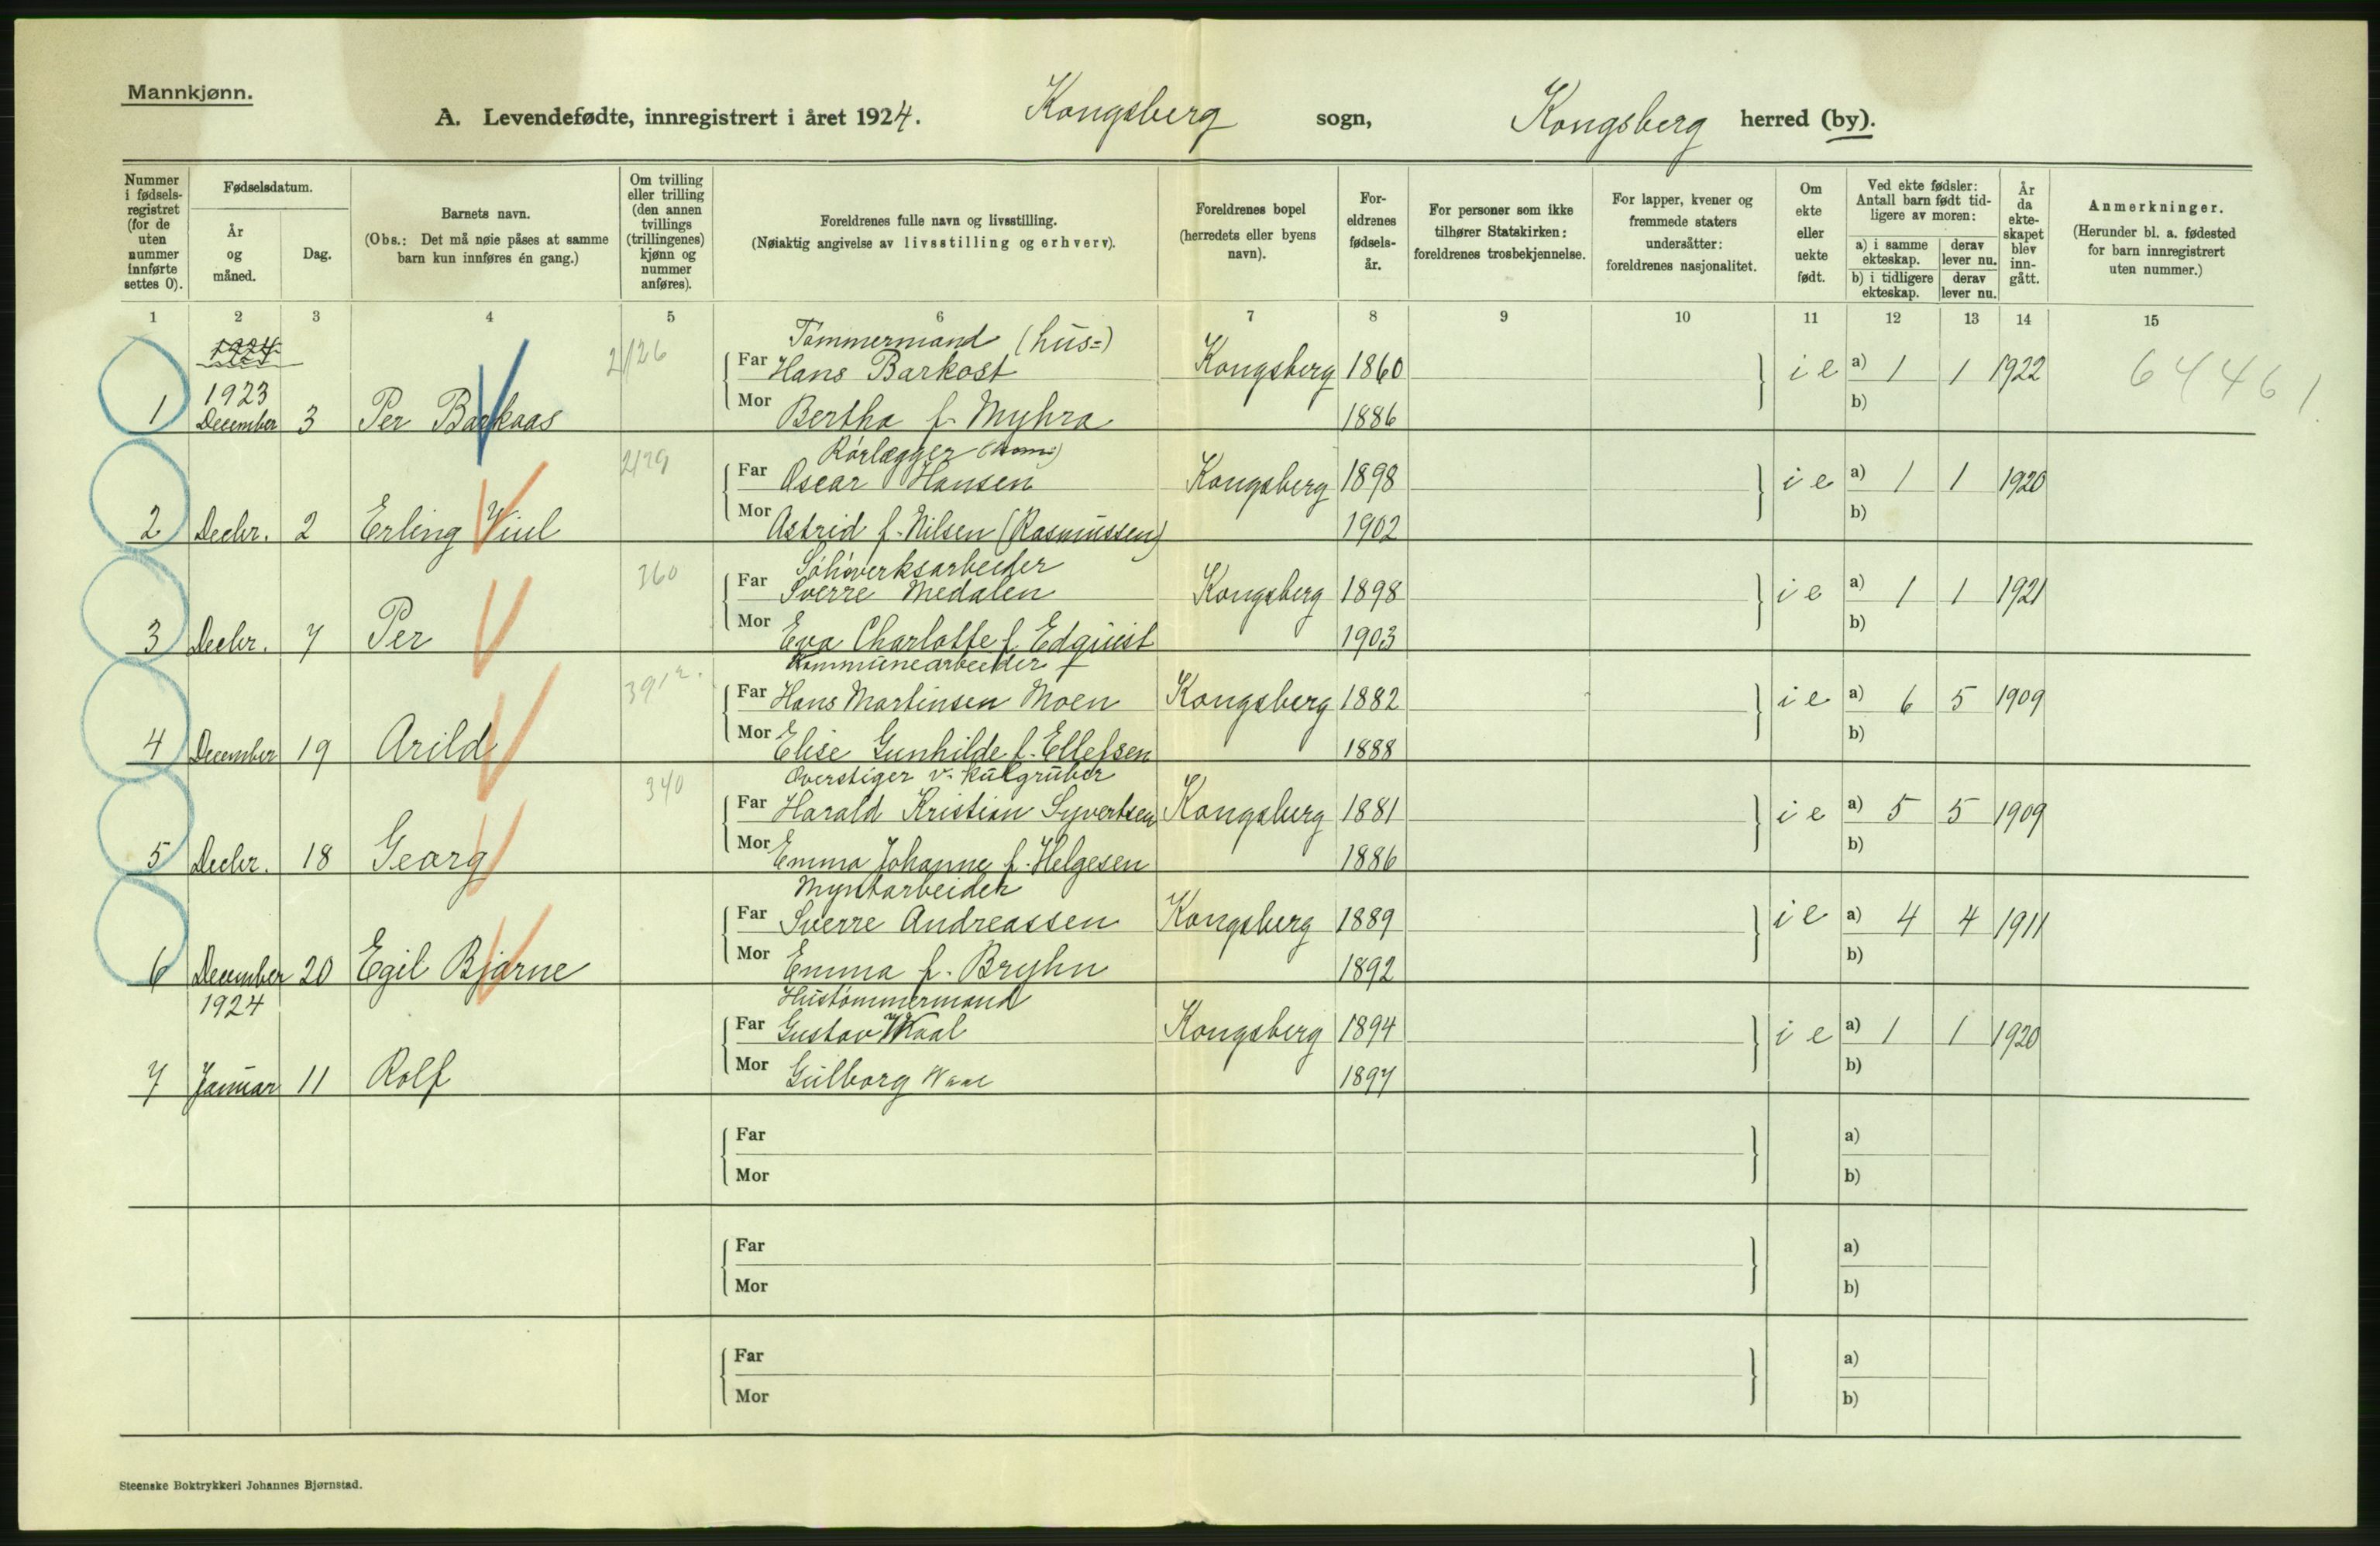 Mannkjønn.
A. Levendefødte, innregistrert i året 1924. Kongsberg sogn, Kongsberg herred (by).
Nummer i fødsels-registret (for de uten nummer innførte settes 0).
Fødselsdatum.
År og måned.
Dag.
Barnets navn.
(Obs.: Det må nøie påses at samme barn kun innføres én gang.)
Om tvilling eller trilling (den annen tvillings (trillingenes) kjønn og nummer anføres).
Foreldrenes fulle navn og livsstilling.
(Nøiaktig angivelse av livsstilling og erhverv).
Foreldrenes bopel (herredets eller byens navn).
For-eldrenes fødsels-år.
For personer som ikke tilhører Statskirken: foreldrenes trosbekjennelse.
For lapper, kvener og fremmede staters undersåtter: foreldrenes nasjonalitet.
Om ekte eller uekte født.
Ved ekte fødsler: Antall barn født tid-ligere av moren:
a) i samme ekteskap. derav lever nu.
b) i tidligere ekteskap. derav lever nu.
År da ekte-skapet blev inn-gått.
Anmerkninger.
(Herunder bl. a. fødested for barn innregistrert uten nummer.)
1 2 3 4 5 6 7 8 9 10 11 12 13 14 15
1924 2126 Tömmermand (hus=)
1923 Far Hans Barkost Kongsberg 1860 ie a) 1 1 1922 64461
1 December 3 Per Barkaas Mor Bertha f. Myhra 1886 b)
2129 Rörlægger
Far Oscar Hansen Kongsberg 1898 ie a) 1 1 1920
2 Decbr. 2 Erling Viul Mor Astrid f. Nilsen (Rasmussen) 1902 b)
360 Sölvverksarbeider
Far Sverre Medalen Kongsberg 1898 ie a) 1 1 1921
3 Decbr. 7 Per Mor Eva Charlotte f. Edquist 1903 b)
Kommunearbeider
Far Hans Martinsen Moen Kongsberg 1882 ie a) 6 5 1909
4 December 19 Arild Mor Elise Gunhilde f. Ellefsen 1888 b)
340 Overstiger v. kulgruber
Far Harald Kristian Syvertsen Kongsberg 1881 ie a) 5 5 1909
5 Decbr. 18 Georg Mor Emma Johanne f. Helgesen 1886 b)
Myntarbeider
Far Sverre Andreassen Kongsberg 1889 ie a) 4 4 1911
6 December 20 Egil Bjarne Mor Emma f. Bryhn 1892 b)
1924 Hustömmermand
Far Gustav Waal Kongsberg 1894 ie a) 1 1 1920
7 Januar 11 Rolf Mor Gulborg Waal 1897 b)
Far a)
Mor b)
Far a)
Mor b)
Far a)
Mor b)
Steenske Boktrykkeri Johannes Bjørnstad.